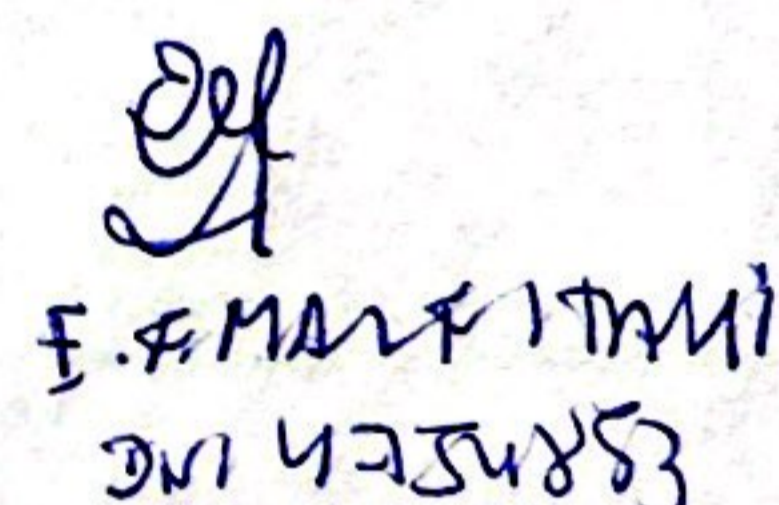 E.F. MALFITANI
DNI 4754853